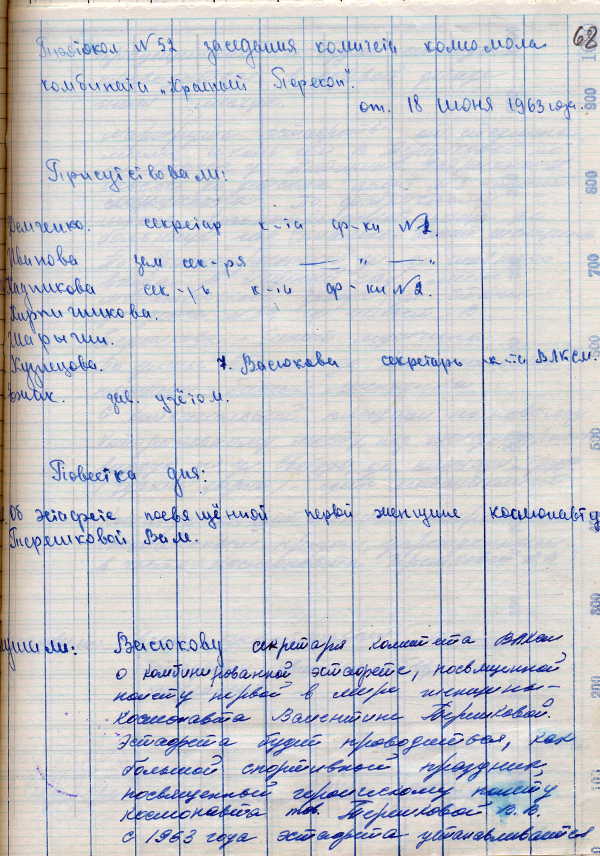 68
Протокол №52 заседания комитета комсомола
комбината „Красный Перекоп".
от 18 июня 1963 года.
Присутствовали:
Демченко. секретар к-та ф-ки №1.
Иванова зам сек-ря —— " —— "
сек-рь к-та ф-ки №2.
Кирпичникова.
Шарыгин.
Кузнецова. 7. Васюкова секретарь к-та ВЛКСМ.
зав. учётом.
Повестка дня:
Об эстафете посвящённой первой женщине космонавту
Терешковой Вал.
Слушали: Васюкову секретаря комитета ВЛКСМ
о комбинированной эстафете, посвященной
полету первой в мире женщины-
космонавта Валентине Терешковой.
Эстафета будет проводиться, как
большой спортивный праздник,
посвященный героическому полету
космонавта тов. Терешковой В.В.
с 1963 года эстафета устанавливается